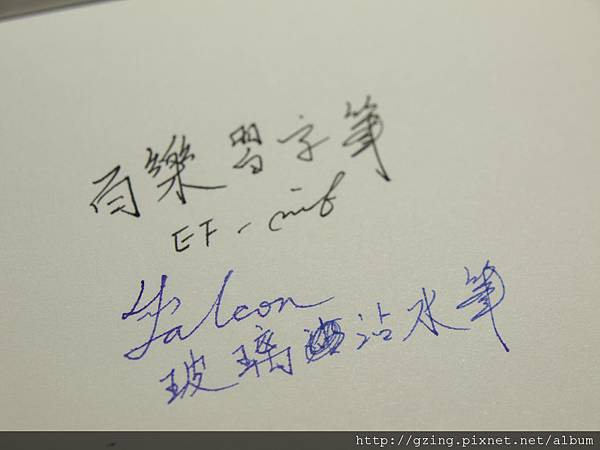 百樂習字筆
EF
Falcon
玻璃沾水筆
http://gzing.pixnet.net/album